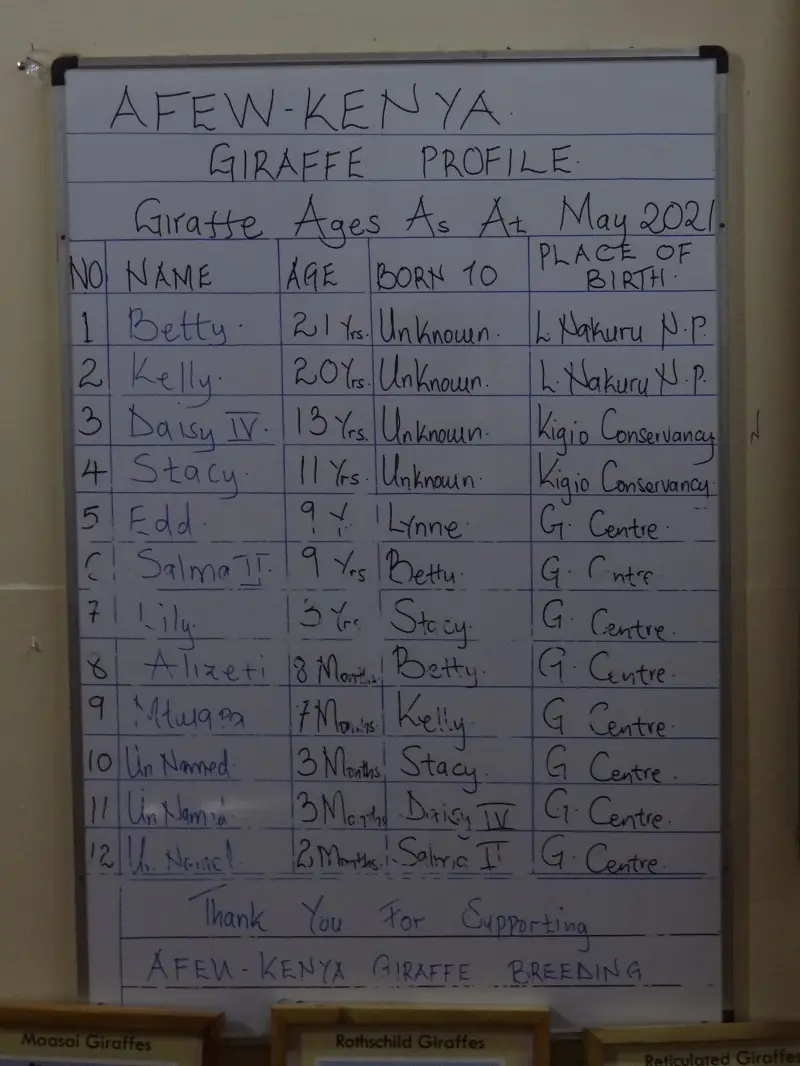 AFEW-KENYA.
GIRAFFE PROFILE.
Giraffe Ages As At May 2021.
NO NAME AGE BORN TO PLACE OF BIRTH.
1 Betty. 21 Yrs. Unknown. L. Nakuru N.P.
2 Kelly. 20 Yrs. Unknown. L. Nakuru N.P.
3 Daisy IV. 13 Yrs. Unknown. Kigio Conservancy
4 Stacy. 11 Yrs. Unknown. Kigio Conservancy.
5 Edd. 9 Y Lynne. G. Centre.
Salma II. 9 Yrs Betty. G.
7 Lily. 3 Yrs Stacy. G. Centre.
8 Alizeti 8 Months. Betty. G. Centre.
9 7 Months. Kelly. G Centre.
10 Un Named. 3 Months. Stacy. G Centre.
11 Un Named 3 Months Daisy IV G. Centre.
12 Un Named 2 Months. Salma II G. Centre.
Thank You For Supporting
AFEW-KENYA GIRAFFE BREEDING
Maasai Giraffes
Rothschild Giraffes
Reticulated Giraffes